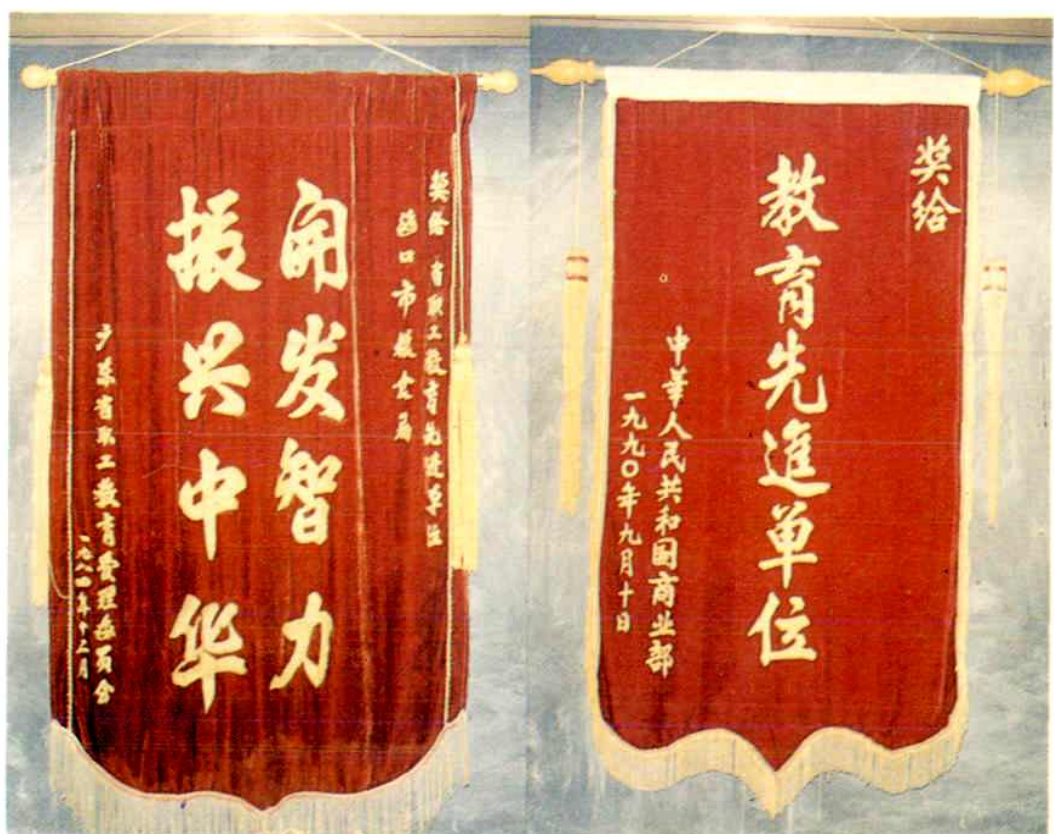 奖给 省职工教育先进单位
海口市教育局
开发智力
振兴中华
广东省职工教育管理委员会
一九八四年十二月
奖给
教育先進单位
中華人民共和国商业部
一九九〇年九月十日